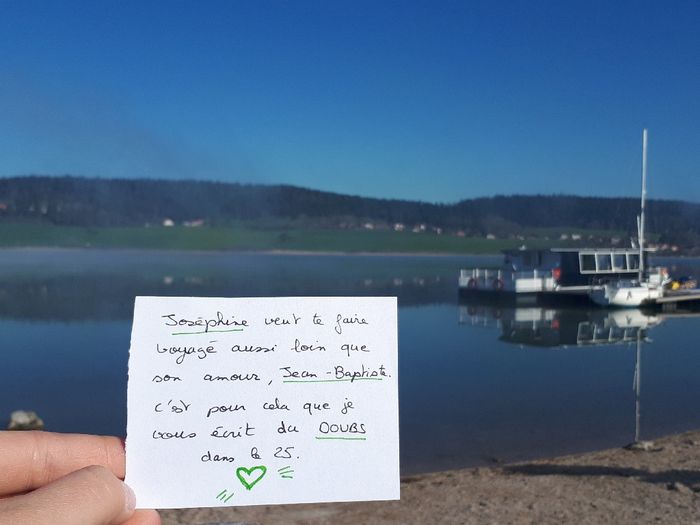 Joséphine veut te faire
voyagé aussi loin que
son amour, Jean-Baptiste.
c'est pour cela que je
vous écrit du DOUBS
dans le 25.